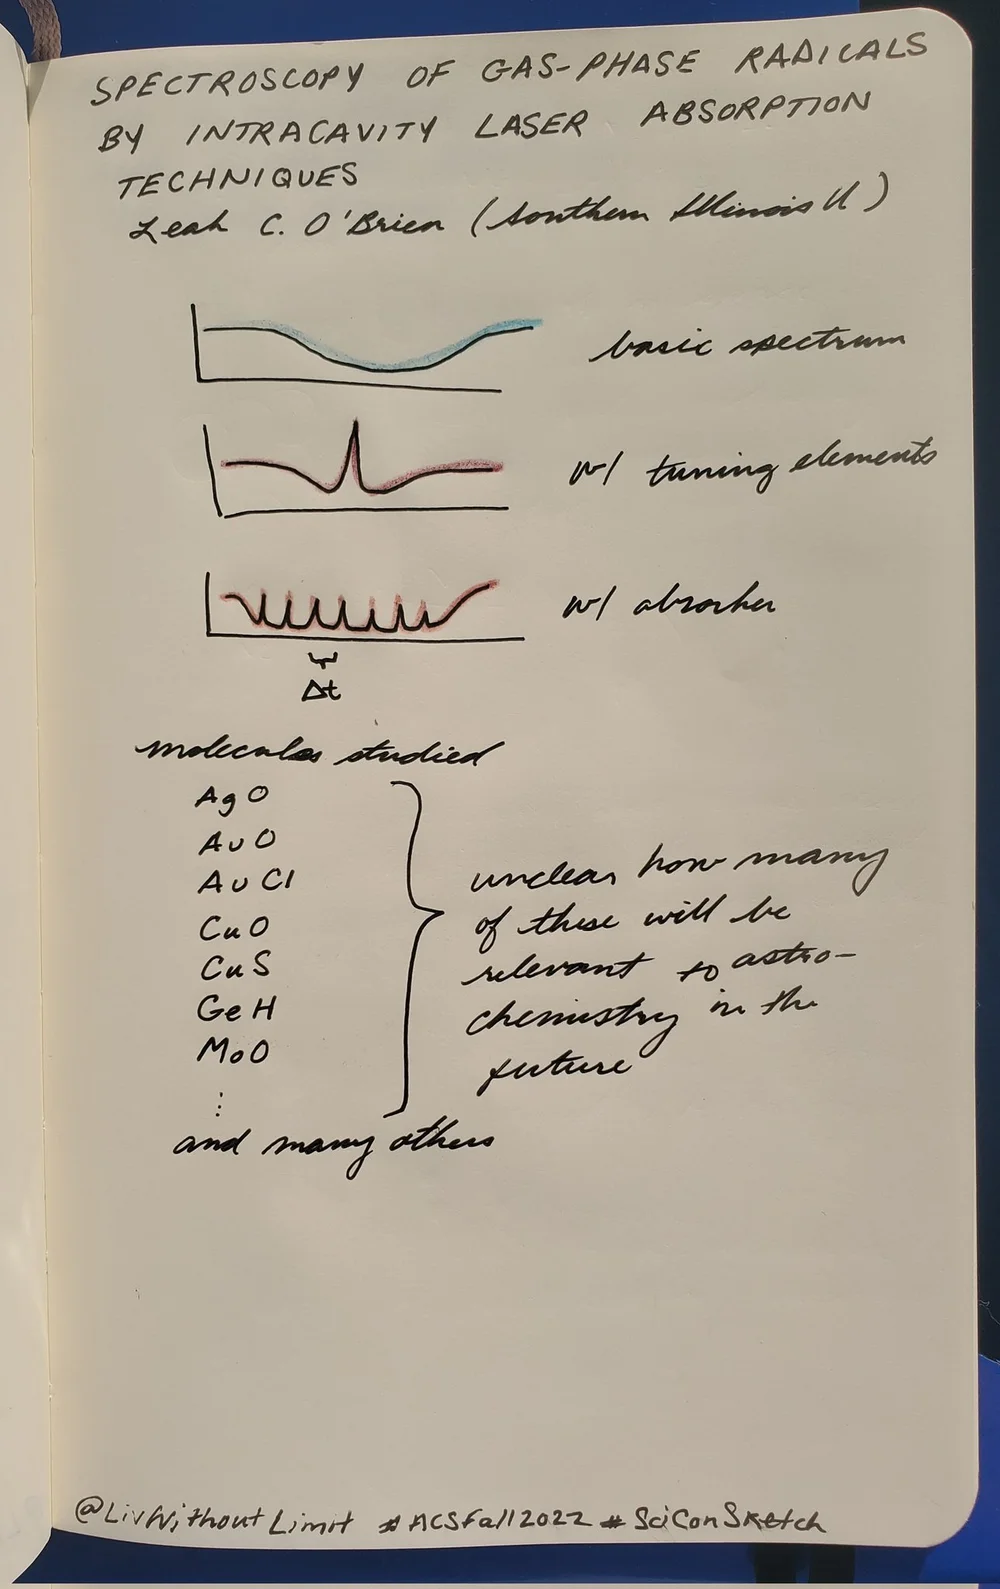 SPECTROSCOPY OF GAS-PHASE RADICALS
BY INTRACAVITY LASER ABSORPTION
TECHNIQUES
Leah C. O'Brien (Southern Illinois U)
basic spectrum
w/ tuning elements
w/ absorber
Δt
molecules studied
AgO
AuO
AuCl
CuO
CuS
GeH
MoO
⋮
and many others
unclear how many
of these will be
relevant to astro-
chemistry in the
future
@LivWithoutLimit #ACSFall2022 #SciConSketch